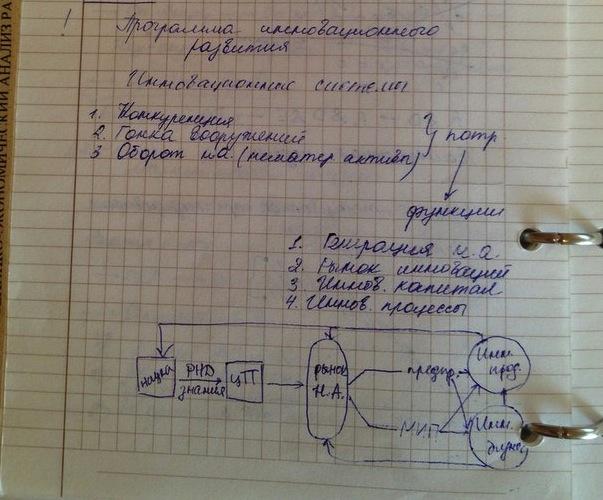 !
Программа инновационного
развития
Инновационные системы
1. Конкуренция
2. Гонка вооружений
3 Оборот н.а. (нематер активы)
} потр
функции
1. Генерация н.а.
2. Рынок инноваций
3 Иннов. капитал
4. Иннов. процессы
наука
РНД
знания
ЦП
рынок
Н.А.
предпр.
МИП
Инн.
прод.
Инн.
ЭКОНОМИЧЕСКИЙ АНАЛИЗ РА